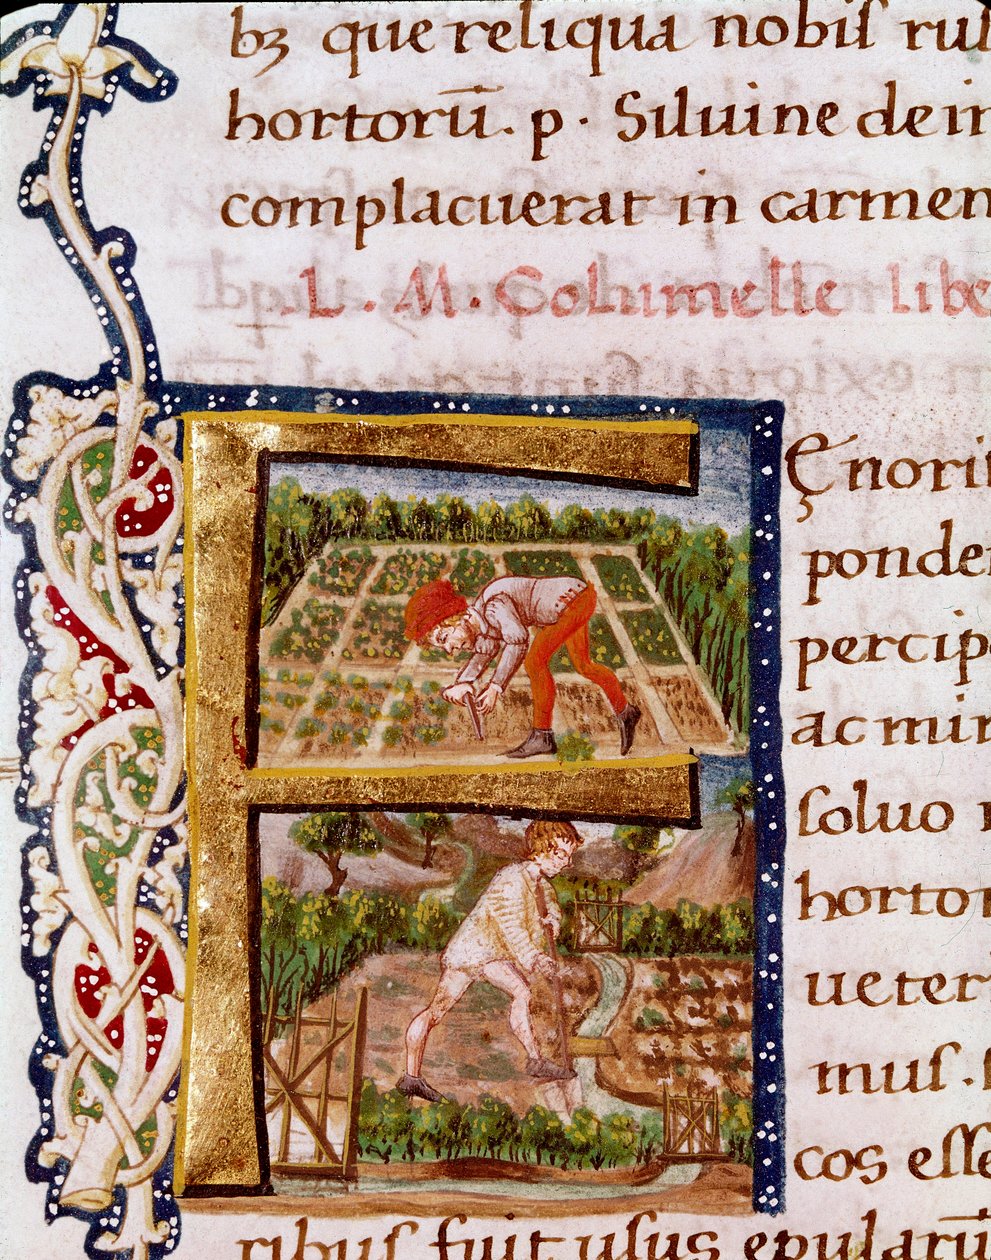 bꝫ que reliqua nobiſ ruſ
hortorū. p. Siluine dein
complacuerat in carmen
L. M. Columelle libe
Fęnori
ponde
percip
ac min
ſoluo
hortor
ueter
muſ.
cos eſſe
ribuſ fuit uſus epularū